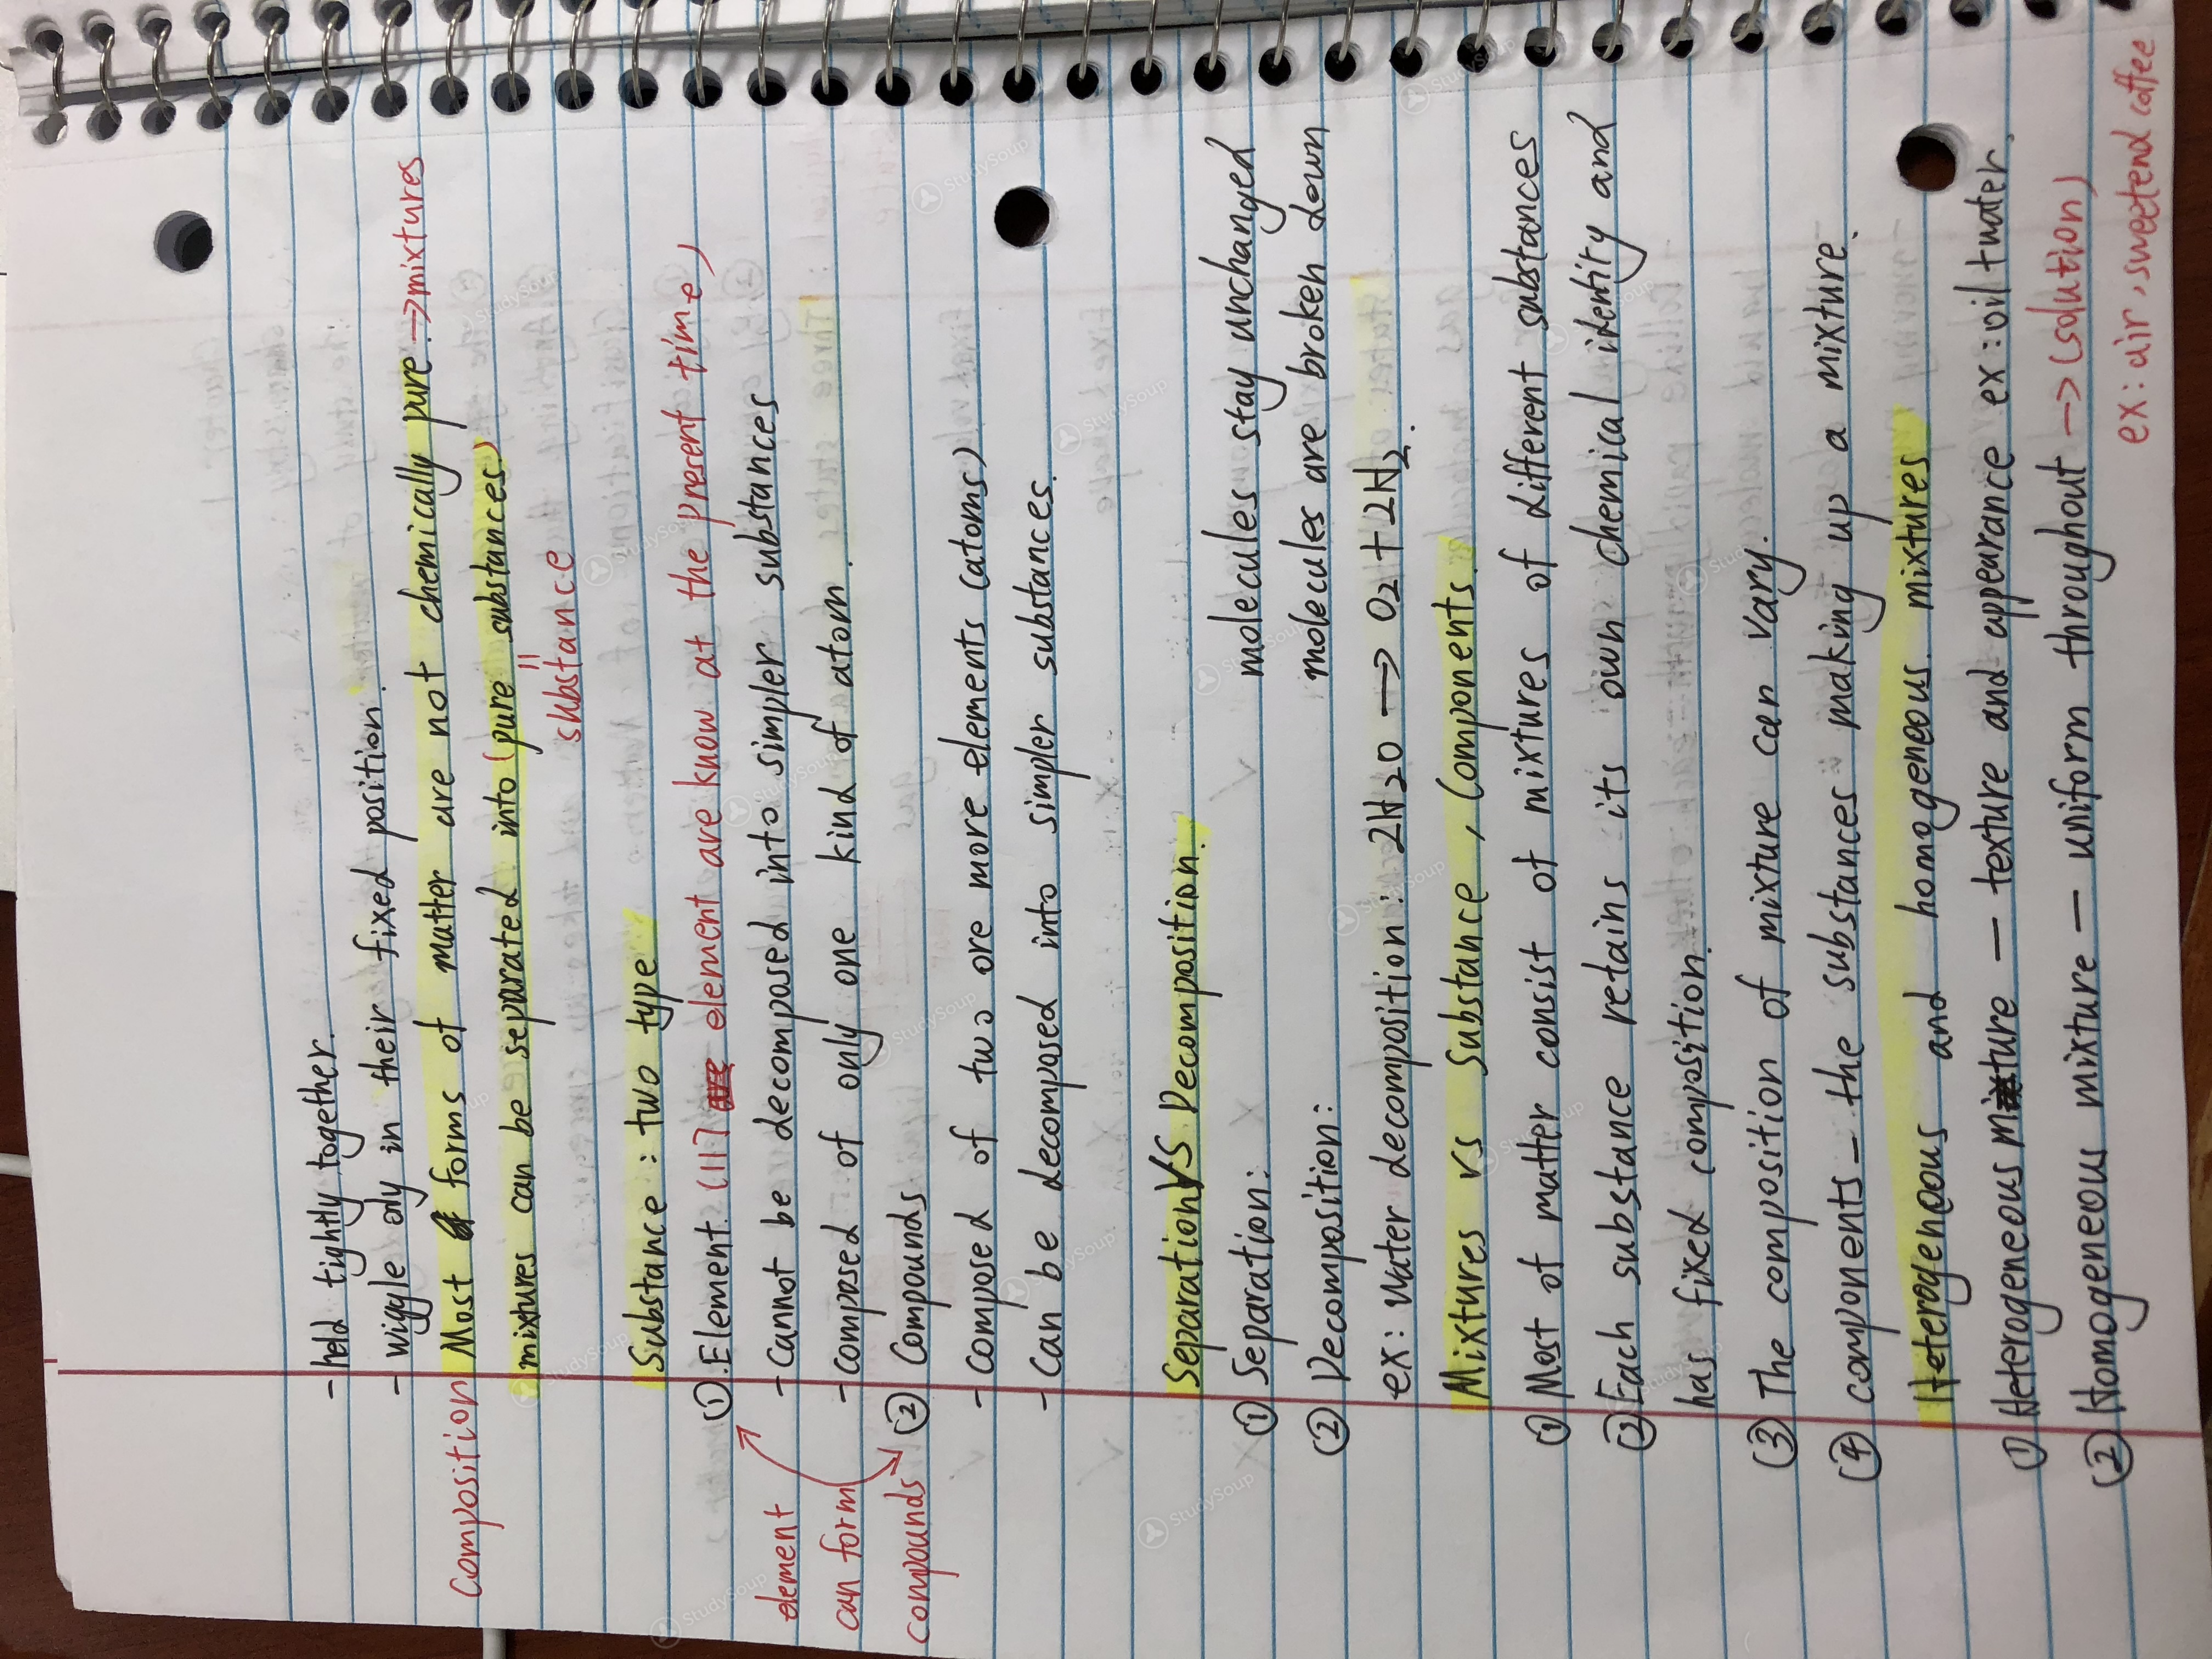 - held tightly together.
- wiggle only in their fixed position.
Composition Most forms of matter are not chemically pure → mixtures
mixtures can be separated into (pure substances)
=
substance
Substance : two type
① Element (117 are element are know at the present time)
- Cannot be decomposed into simpler substances
- composed of only one kind of atom.
element
can form
compounds
② Compounds
- Composed of two ore more elements (atoms)
- Can be decomposed into simpler substances.
Separation VS Decomposition.
① Separation: molecules stay unchanged
② Decomposition: molecules are broken down
ex: water decomposition: 2H20 → O2 + 2H2.
Mixtures vs Substance, Components.
① Most of matter consist of mixtures of different substances
② Each substance retains its own chemical identity and
has fixed composition.
③ The composition of mixture can vary.
④ components - the substances making up a mixture.
Heterogeneous and homogeneous mixtures
① Heterogeneous mixture — texture and appearance ex: oil + water.
② Homogeneous mixture — uniform throughout → (solution)
ex: air, sweetend coffee
StudySoup